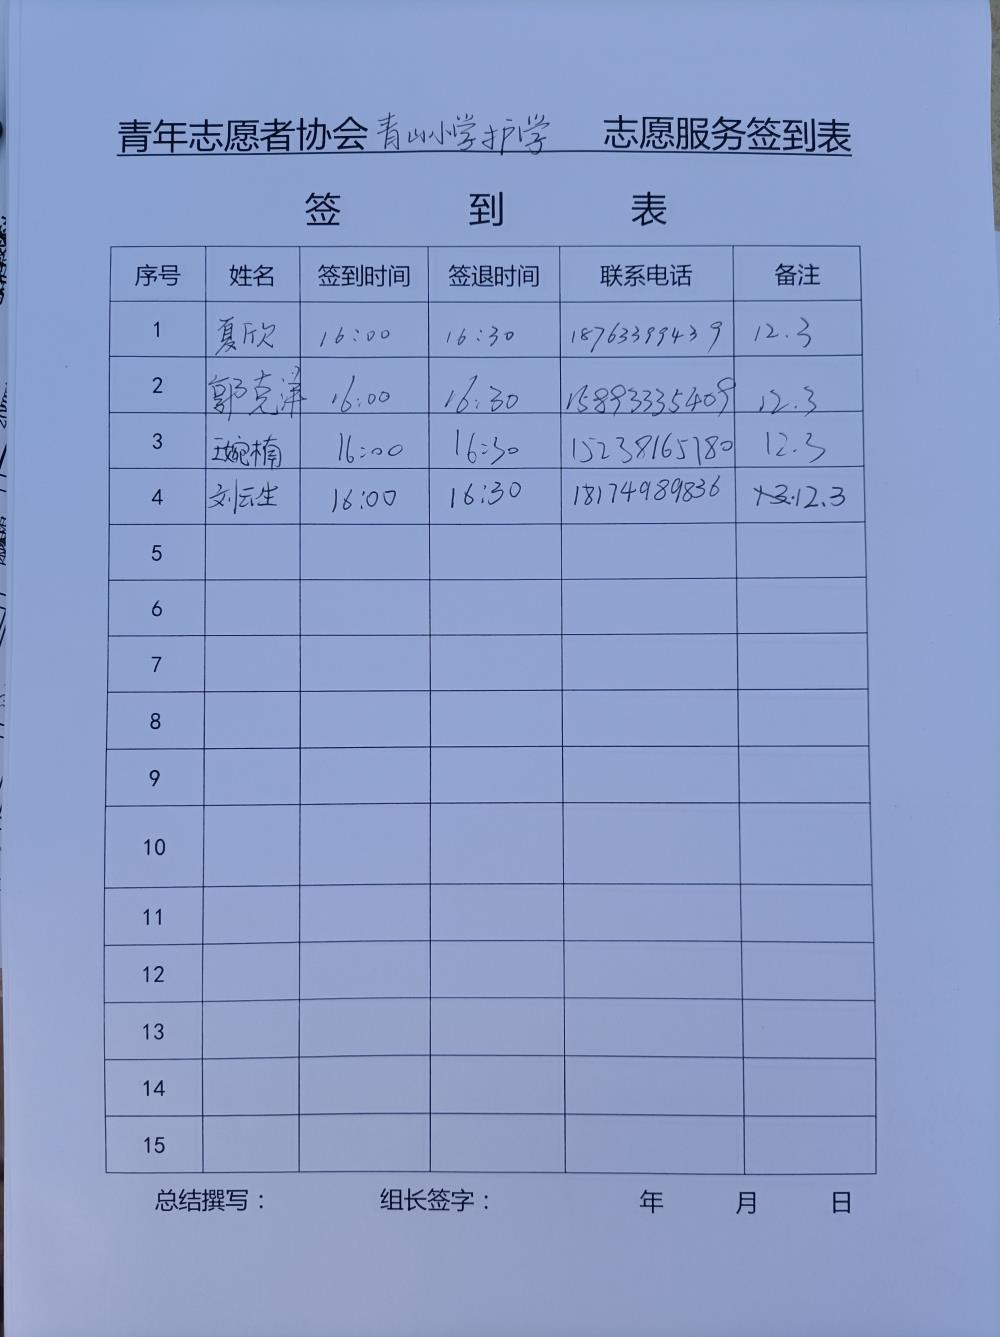 青年志愿者协会青山小学护学 志愿服务签到表
签 到 表
序号 姓名 签到时间 签退时间 联系电话 备注
1 夏欣 16:00 16:30 18763399439 12.3
2 郭克泽 16:00 16:30 15893335409 12.3
3 王婉楠 16:00 16:30 15238165780 12.3
4 刘云生 16:00 16:30 18174989836 12.3
5
6
7
8
9
10
11
12
13
14
15
总结撰写： 组长签字： 年 月 日